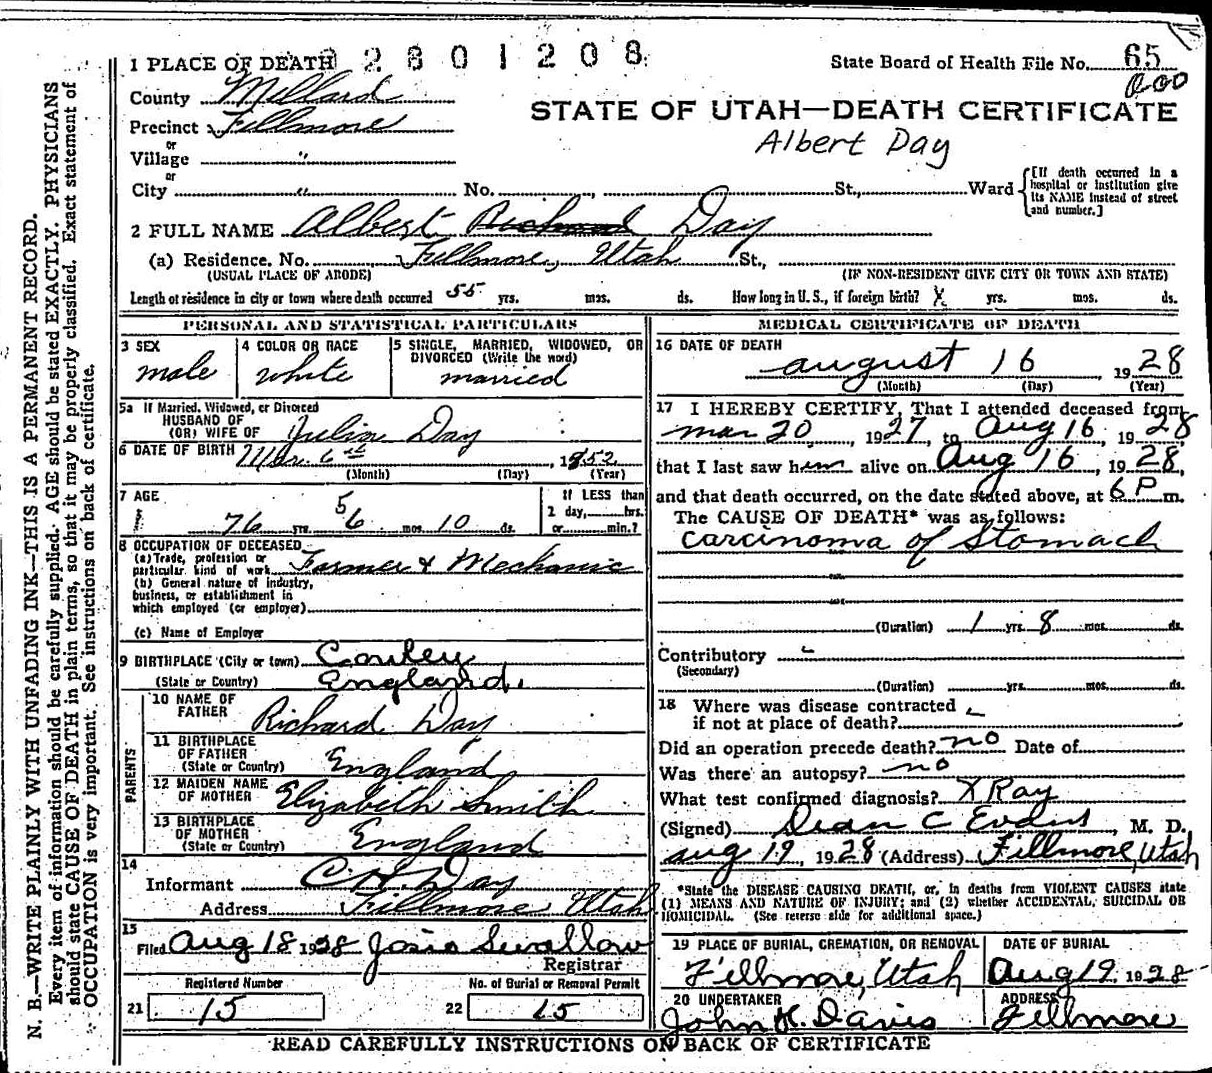 1 PLACE OF DEATH 2 8 0 1 2 0 8 State Board of Health File No. 65
County Millard 000
STATE OF UTAH—DEATH CERTIFICATE
Precinct Fillmore
or
Village "
Albert Day
or
City " No. , St., Ward [If death occurred in a hospital or institution give its NAME instead of street and number.]
2 FULL NAME Albert Richard Day
(a) Residence. No. Fillmore, Utah St.,
(USUAL PLACE OF ABODE) (IF NON-RESIDENT GIVE CITY OR TOWN AND STATE)
Length of residence in city or town where death occurred 55 yrs. mos. ds. How long in U. S., if foreign birth? X yrs. mos. ds.
PERSONAL AND STATISTICAL PARTICULARS
3 SEX
male
4 COLOR OR RACE
white
5 SINGLE, MARRIED, WIDOWED, OR
DIVORCED (Write the word)
married
5a If Married, Widowed, or Divorced
HUSBAND OF
(OR) WIFE OF Julia Day
6 DATE OF BIRTH Mar. 6th , 1852
(Month) (Day) (Year)
7 AGE
5
76 yrs. 6 mos. 10 ds.
If LESS than
1 day, hrs.
or min.?
8 OCCUPATION OF DECEASED
(a) Trade, profession or
particular kind of work Farmer & Mechanic
(b) General nature of industry,
business, or establishment in
which employed (or employer)
(c) Name of Employer
9 BIRTHPLACE (City or town) Conley
(State or Country) England.
PARENTS
10 NAME OF
FATHER Richard Day
11 BIRTHPLACE
OF FATHER
(State or Country) England
12 MAIDEN NAME
OF MOTHER Elizabeth Smith
13 BIRTHPLACE
OF MOTHER
(State or Country) England
14
Informant C A Day
Address Fillmore Utah
15
Filed Aug 18 1928 Josie Swallow
Registrar
Registered Number
21 15
No. of Burial or Removal Permit
22 15
MEDICAL CERTIFICATE OF DEATH
16 DATE OF DEATH
august 16 1928
(Month) (Day) (Year)
17 I HEREBY CERTIFY, That I attended deceased from
mar 20, 1927, to Aug 16, 1928
that I last saw him alive on Aug 16, 1928,
and that death occurred, on the date stated above, at 6 P m.
The CAUSE OF DEATH* was as follows:
carcinoma of Stomach
(Duration) 1 yrs. 8 mos. ds.
Contributory -
(Secondary)
(Duration) yrs. mos. ds.
18 Where was disease contracted
if not at place of death?
Did an operation precede death? no Date of
Was there an autopsy? no
What test confirmed diagnosis? X Ray
(Signed) Dean C Evans, M. D.
aug 19, 1928 (Address) Fillmore, Utah
*State the DISEASE CAUSING DEATH, or, in deaths from VIOLENT CAUSES state
(1) MEANS AND NATURE OF INJURY; and (2) whether ACCIDENTAL, SUICIDAL OR
HOMICIDAL. (See reverse side for additional space.)
19 PLACE OF BURIAL, CREMATION, OR REMOVAL
Fillmore, Utah
DATE OF BURIAL
Aug 19 1928
20 UNDERTAKER
John K. Davis
ADDRESS
Fillmore
READ CAREFULLY INSTRUCTIONS ON BACK OF CERTIFICATE
N. B.—WRITE PLAINLY WITH UNFADING INK—THIS IS A PERMANENT RECORD.
Every item of information should be carefully supplied. AGE should be stated EXACTLY. PHYSICIANS
should state CAUSE OF DEATH in plain terms, so that it may be properly classified. Exact statement of
OCCUPATION is very important. See instructions on back of certificate.